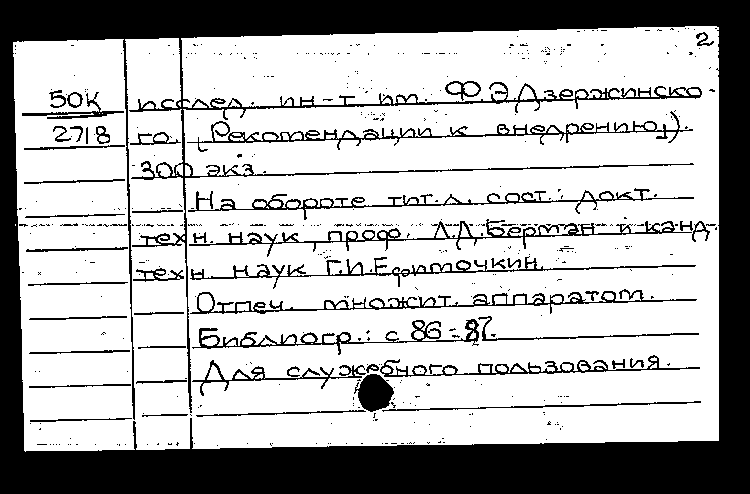 2
50К исслед. ин-т им. Ф.Э.Дзержинско-
2718 го. (Рекомендации к внедрению).
300 экз.
На обороте тит.л. сост.: докт.
техн. наук, проф. Л.Д.Берман и канд.
техн. наук Г.И.Ефимочкин.
Отпеч. множит. аппаратом.
Библиогр.: с 86-87.
Для служебного пользования.